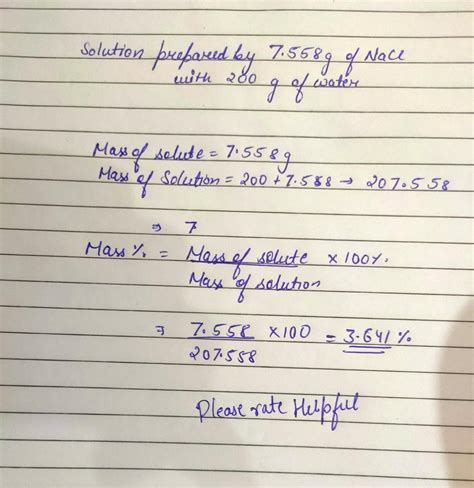 Solution prepared by 7.558g of NaCl
with 200 g of water
Mass of solute = 7.558g
Mass of Solution = 200 + 7.558 → 207.558
⇒ 7
Mass % = Mass of solute × 100%
Mass of solution
⇒ 7.558 × 100 = 3.641 %
207.558
Please rate Helpful